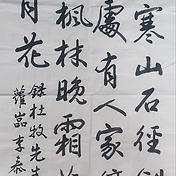 寒山石徑斜
處有人家停
楓林晚霜
月花
錄杜牧先生
李泰